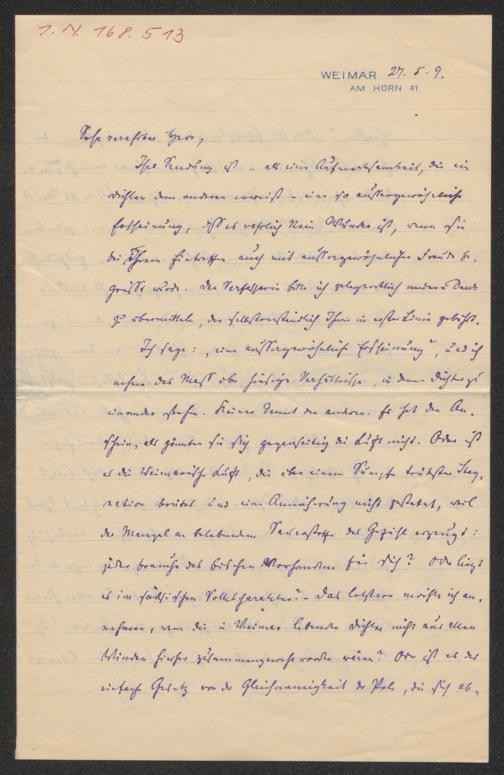 I. N. 168.513
WEIMAR 27. 5. 9.
AM HORN 41
Sehr verehrter Herr,
Ihre Sendung ist – als eine Aufmerksamkeit, die ein
Dichter dem anderen erweist – eine so aussergewöhnliche
Erscheinung, dass es wahrlich kein Wunder ist, wenn sie
bei ihrem Eintreffen auch mit aussergewöhnlicher Freude be-
grüsst wurde. Den Verfasserin bitte ich gelegentlich meinen Dank
zu übermitteln, der selbstverständlich Ihnen in erster Linie gebührt.
Ich sage: „eine aussergewöhnliche Erscheinung“, und ich
nehme das Mass der hiesigen Verhältnisse, in denen Dichter zu
einander stehen. Keiner kennt den anderen. Es hat den An-
schein, als gönnten sie sich gegenseitig die Luft nicht. Oder ist
es die Weimarische Luft, die über einem Sumpfe trübster Stag-
nation brütet und eine Annäherung nicht gestattet, weil
der Mangel an belebendem Sauerstoffe das Gefühl erzeugt:
jeder brauche das bischen Vorhandene für sich? Oder liegt
es im sächsischen Volkscharakter? – Das letztere möchte ich an-
nehmen, wenn die in Weimar lebenden Dichter nicht aus allen
Winden hierher zusammengeweht worden wären? Oder ist es das
einfache Gesetz von der Gleichnamigkeit der Pole, die sich ab-